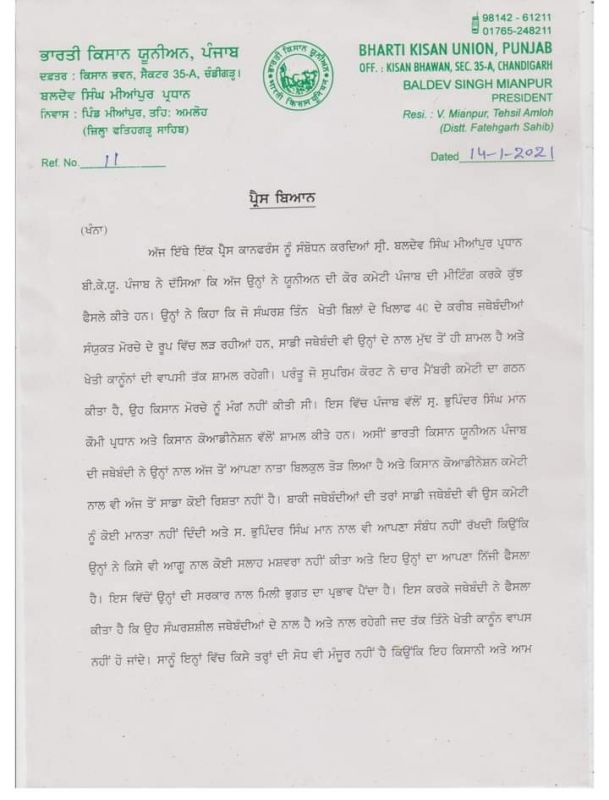 98142 - 61211
01765-248211
ਭਾਰਤੀ ਕਿਸਾਨ ਯੂਨੀਅਨ, ਪੰਜਾਬ
ਦਫਤਰ : ਕਿਸਾਨ ਭਵਨ, ਸੈਕਟਰ 35-A, ਚੰਡੀਗੜ੍ਹ।
ਬਲਦੇਵ ਸਿੰਘ ਮੀਆਂਪੁਰ ਪ੍ਰਧਾਨ
ਨਿਵਾਸ : ਪਿੰਡ ਮੀਆਂਪੁਰ, ਤਹਿ: ਅਮਲੋਹ
(ਜ਼ਿਲ੍ਹਾ ਫਤਿਹਗੜ੍ਹ ਸਾਹਿਬ)
ਭਾਰਤੀ ਕਿਸਾਨ ਯੂਨੀਅਨ
BHARTI KISAN UNION, PUNJAB
OFF. : KISAN BHAWAN, SEC. 35-A, CHANDIGARH
BALDEV SINGH MIANPUR
PRESIDENT
Resi. : V. Mianpur, Tehsil Amloh
(Distt. Fatehgarh Sahib)
Ref. No. 11
Dated 14-1-2021
ਪ੍ਰੈਸ ਬਿਆਨ
(ਖੰਨਾ)
ਅੱਜ ਇੱਥੇ ਇੱਕ ਪ੍ਰੈਸ ਕਾਨਫਰੰਸ ਨੂੰ ਸੰਬੋਧਨ ਕਰਦਿਆਂ ਸ੍ਰੀ. ਬਲਦੇਵ ਸਿੰਘ ਮੀਆਂਪੁਰ ਪ੍ਰਧਾਨ
ਬੀ.ਕੇ.ਯੂ. ਪੰਜਾਬ ਨੇ ਦੱਸਿਆ ਕਿ ਅੱਜ ਉਨ੍ਹਾਂ ਨੇ ਯੂਨੀਅਨ ਦੀ ਕੋਰ ਕਮੇਟੀ ਪੰਜਾਬ ਦੀ ਮੀਟਿੰਗ ਕਰਕੇ ਕੁੱਝ
ਫੈਸਲੇ ਕੀਤੇ ਹਨ। ਉਨ੍ਹਾਂ ਨੇ ਕਿਹਾ ਕਿ ਜੋ ਸੰਘਰਸ਼ ਤਿੰਨ ਖੇਤੀ ਬਿਲਾਂ ਦੇ ਖਿਲਾਫ 40 ਦੇ ਕਰੀਬ ਜਥੇਬੰਦੀਆਂ
ਸੰਯੁਕਤ ਮੋਰਚੇ ਦੇ ਰੂਪ ਵਿੱਚ ਲੜ ਰਹੀਆਂ ਹਨ, ਸਾਡੀ ਜਥੇਬੰਦੀ ਵੀ ਉਨ੍ਹਾਂ ਦੇ ਨਾਲ ਮੁੱਢ ਤੋਂ ਹੀ ਸ਼ਾਮਲ ਹੈ ਅਤੇ
ਖੇਤੀ ਕਾਨੂੰਨਾਂ ਦੀ ਵਾਪਸੀ ਤੱਕ ਸ਼ਾਮਲ ਰਹੇਗੀ। ਪਰੰਤੂ ਜੋ ਸੁਪਰਿਮ ਕੋਰਟ ਨੇ ਚਾਰ ਮੈਂਬਰੀ ਕਮੇਟੀ ਦਾ ਗਠਨ
ਕੀਤਾ ਹੈ, ਉਹ ਕਿਸਾਨ ਮੋਰਚੇ ਨੂੰ ਮੰਗ ਨਹੀਂ ਕੀਤੀ ਸੀ। ਇਸ ਵਿੱਚ ਪੰਜਾਬ ਵੱਲੋਂ ਸ੍ਰ. ਭੁਪਿੰਦਰ ਸਿੰਘ ਮਾਨ
ਕੌਮੀ ਪ੍ਰਧਾਨ ਅਤੇ ਕਿਸਾਨ ਕੋਆਡੀਨੇਸ਼ਨ ਵੱਲੋਂ ਸ਼ਾਮਲ ਕੀਤੇ ਹਨ। ਅਸੀਂ ਭਾਰਤੀ ਕਿਸਾਨ ਯੂਨੀਅਨ ਪੰਜਾਬ
ਦੀ ਜਥੇਬੰਦੀ ਨੇ ਉਨ੍ਹਾਂ ਨਾਲ ਅੱਜ ਤੋਂ ਆਪਣਾ ਨਾਤਾ ਬਿਲਕੁਲ ਤੋੜ ਲਿਆ ਹੈ ਅਤੇ ਕਿਸਾਨ ਕੋਆਡੀਨੇਸ਼ਨ ਕਮੇਟੀ
ਨਾਲ ਵੀ ਅੱਜ ਤੋਂ ਸਾਡਾ ਕੋਈ ਰਿਸ਼ਤਾ ਨਹੀਂ ਹੈ। ਬਾਕੀ ਜਥੇਬੰਦੀਆਂ ਦੀ ਤਰਾਂ ਸਾਡੀ ਜਥੇਬੰਦੀ ਵੀ ਉਸ ਕਮੇਟੀ
ਨੂੰ ਕੋਈ ਮਾਨਤਾ ਨਹੀਂ ਦਿੰਦੀ ਅਤੇ ਸ. ਭੁਪਿੰਦਰ ਸਿੰਘ ਮਾਨ ਨਾਲ ਵੀ ਆਪਣਾ ਸੰਬੰਧ ਨਹੀਂ ਰੱਖਦੀ ਕਿਉਂਕਿ
ਉਨ੍ਹਾਂ ਨੇ ਕਿਸੇ ਵੀ ਆਗੂ ਨਾਲ ਕੋਈ ਸਲਾਹ ਮਸ਼ਵਰਾ ਨਹੀਂ ਕੀਤਾ ਅਤੇ ਇਹ ਉਨ੍ਹਾਂ ਦਾ ਆਪਣਾ ਨਿੱਜੀ ਫੈਸਲਾ
ਹੈ। ਇਸ ਵਿੱਚੋਂ ਉਨ੍ਹਾਂ ਦੀ ਸਰਕਾਰ ਨਾਲ ਮਿਲੀ ਭੁਗਤ ਦਾ ਪ੍ਰਭਾਵ ਪੈਂਦਾ ਹੈ। ਇਸ ਕਰਕੇ ਜਥੇਬੰਦੀ ਨੇ ਫੈਸਲਾ
ਕੀਤਾ ਹੈ ਕਿ ਉਹ ਸੰਘਰਸ਼ਸ਼ੀਲ ਜਥੇਬੰਦੀਆਂ ਦੇ ਨਾਲ ਹੈ ਅਤੇ ਨਾਲ ਰਹੇਗੀ ਜਦ ਤੱਕ ਤਿੰਨੇ ਖੇਤੀ ਕਾਨੂੰਨ ਵਾਪਸ
ਨਹੀਂ ਹੋ ਜਾਂਦੇ। ਸਾਨੂੰ ਇਨ੍ਹਾਂ ਵਿੱਚ ਕਿਸੇ ਤਰ੍ਹਾਂ ਦੀ ਸੋਧ ਵੀ ਮੰਜੂਰ ਨਹੀਂ ਹੈ ਕਿਉਂਕਿ ਇਹ ਕਿਸਾਨੀ ਅਤੇ ਆਮ